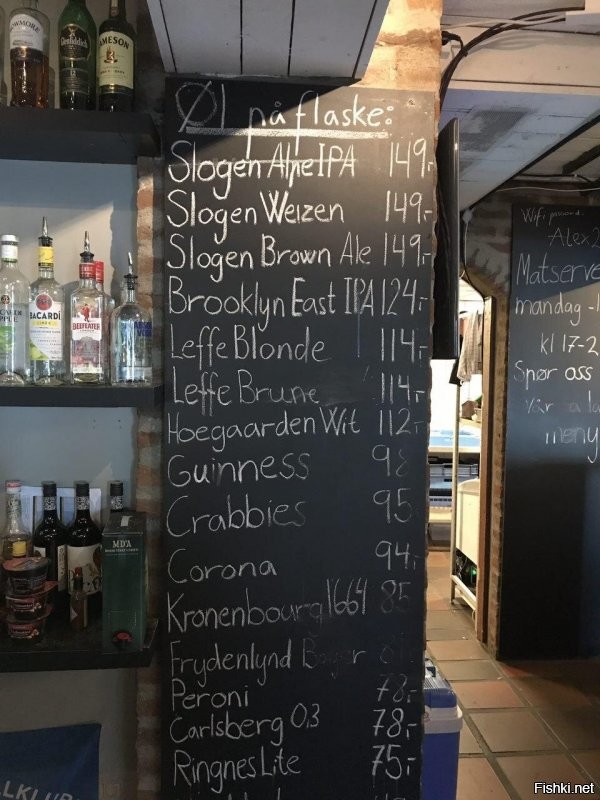 Øl på flaske:
Slogen Alpe IPA 149,-
Slogen Weizen 149,-
Slogen Brown Ale 149,-
Brooklyn East IPA 124,-
Leffe Blonde 114,-
Leffe Brune 114,-
Hoegaarden Wit 112,-
Guinness 98
Crabbies 95
Corona 94,-
Kronenbourg 1664 85
Frydenlynd
Peroni 78,-
Carlsberg 0,3 78,-
Ringnes Lite 75,-
Wifi
Alex2
Matserve
mandag -
kl 17-2
Spør oss
Vår
meny
BOWMORE
Glenfiddich
JAMESON
BACARDI
BEEFEATER
ABSOLUT
MD'A
Fishki.net